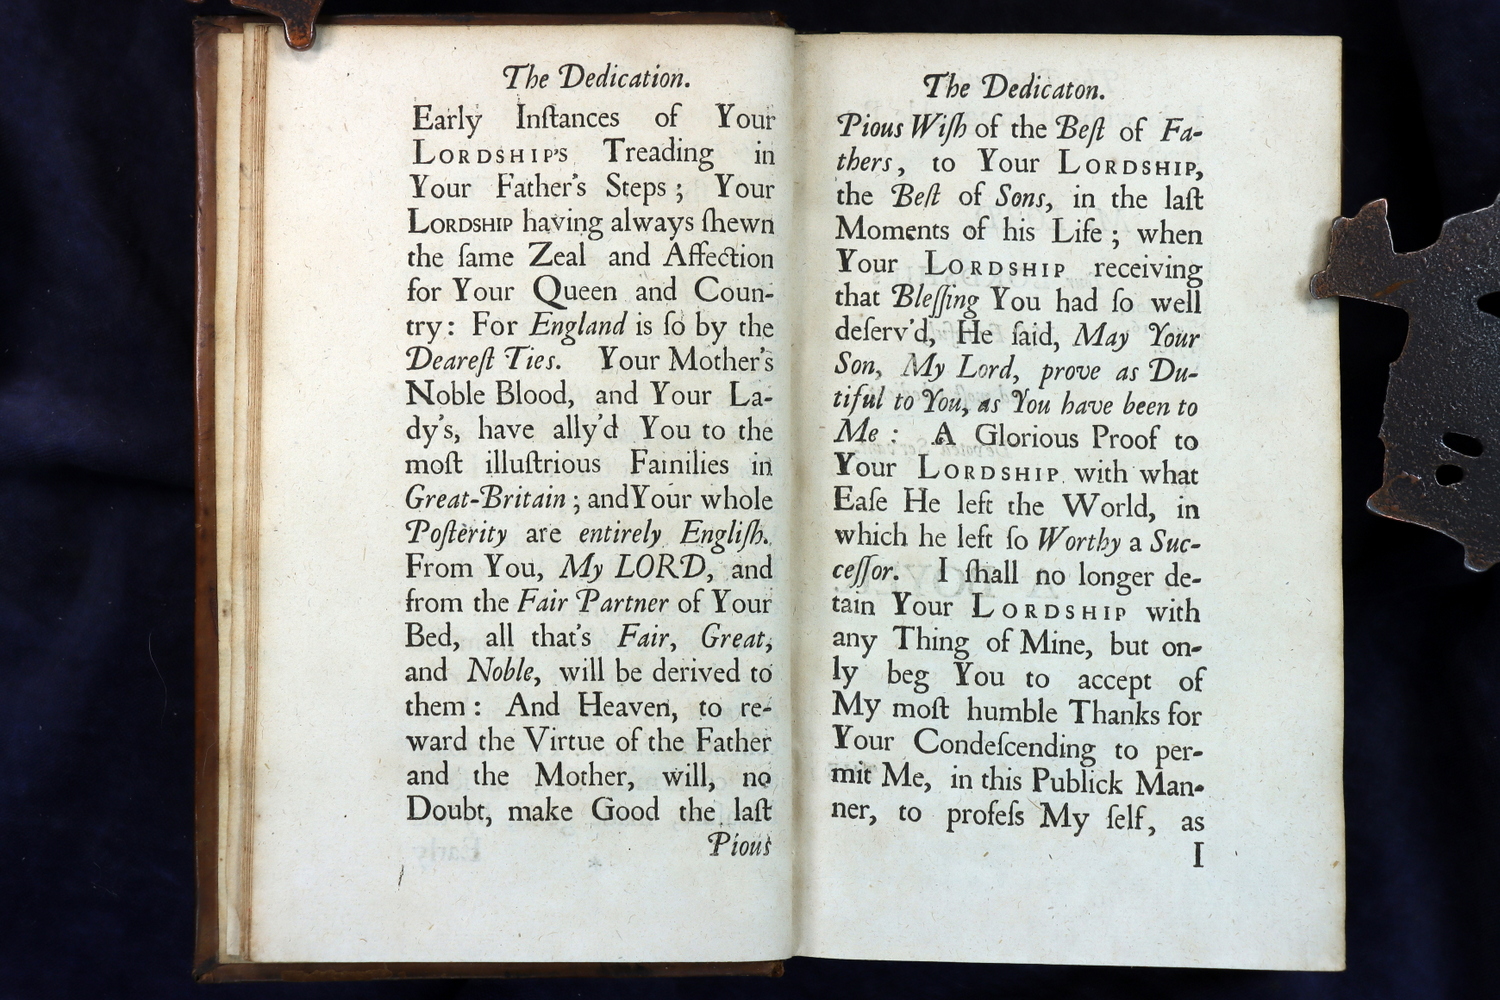 The Dedication.
Early Inſtances of Your
LORDSHIP's Treading in
Your Father's Steps; Your
LORDSHIP having always ſhewn
the ſame Zeal and Affection
for Your Queen and Coun-
try: For England is ſo by the
Deareſt Ties. Your Mother's
Noble Blood, and Your La-
dy's, have ally'd You to the
moſt illuſtrious Families in
Great-Britain; andYour whole
Poſterity are entirely Engliſh.
From You, My LORD, and
from the Fair Partner of Your
Bed, all that's Fair, Great,
and Noble, will be derived to
them: And Heaven, to re-
ward the Virtue of the Father
and the Mother, will, no
Doubt, make Good the laſt
Pious
The Dedicaton.
Pious Wiſh of the Beſt of Fa-
thers, to Your LORDSHIP,
the Beſt of Sons, in the laſt
Moments of his Life; when
Your LORDSHIP receiving
that Bleſſing You had ſo well
deſerv'd, He ſaid, May Your
Son, My Lord, prove as Du-
tiful to You, as You have been to
Me: A Glorious Proof to
Your LORDSHIP with what
Eaſe He left the World, in
which he left ſo Worthy a Suc-
ceſſor. I ſhall no longer de-
tain Your LORDSHIP with
any Thing of Mine, but on-
ly beg You to accept of
My moſt humble Thanks for
Your Condeſcending to per-
mit Me, in this Publick Man-
ner, to profeſs My ſelf, as
I